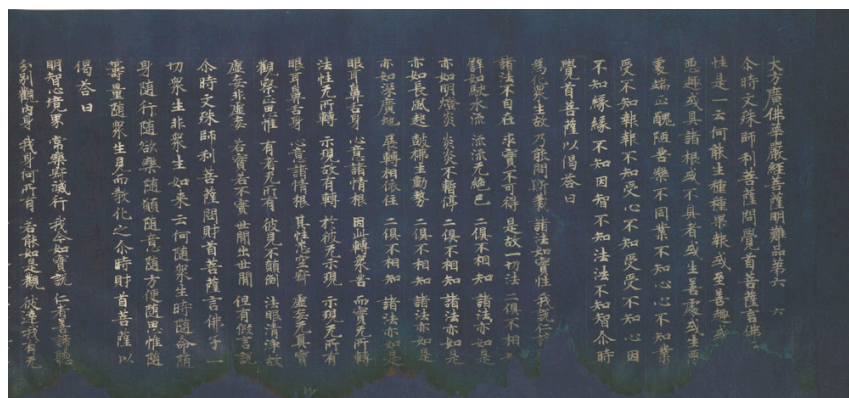 大方廣佛華嚴經菩薩明難品第六 六
尒時文殊師利菩薩問覺首菩薩言佛
性是一云何能生種種果報或至善趣或
惡趣或具諸根或不具者或生善處或生惡
處端正醜陋苦樂不同業不知心心不知業
受不知報報不知受心不知受受不知心因
不知緣緣不知因智不知法法不知智尒時
覺首菩薩以偈荅曰
為化衆生故 乃能問斯義 諸法如實性 我說仁諦
諸法不自在 求實不可得 是故一切法 二俱不相
譬如駛水流 流流无絶已 二俱不相知 諸法亦如是
亦如明燈炎 炎炎不暫停 二俱不相知 諸法亦如是
亦如長風起 鼓拂生動勢 二俱不相知 諸法亦如是
亦如深廣地 展轉相依住 二俱不相知 諸法亦如是
眼耳鼻舌身 心意諸情根 因此轉衆苦 而實无所轉
法性无所轉 示現故有轉 於彼无示現 示現无所有
眼耳鼻舌身 心意諸情根 其性悉空寂 虛妄无真實
觀察正思惟 有者无所有 彼見不顛倒 法眼清淨故
虛妄非虛妄 若實若不實 世間出世間 但有假言說
尒時文殊師利菩薩問財首菩薩言佛子一
切衆生非衆生如來云何隨衆生時隨命隨
身隨行隨欲樂隨願隨意隨方便隨思惟隨
籌量隨衆生見而教化之尒時財首菩薩以
偈荅曰
明智心境界 常樂寂滅行 我今如實說 仁者善諦聽
分別觀內身 我身何所有 若能如是觀 彼達我有无